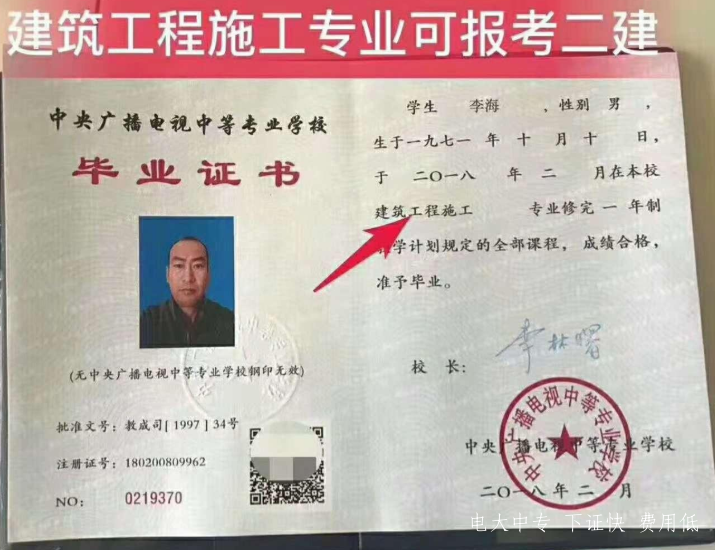 建筑工程施工专业可报考二建
中央广播电视中等专业学校
毕业证书
(无中央广播电视中等专业学校钢印无效)
批准文号：教成司[1997]34号
注册证号：180200809962
NO: 0219370
学生 李海 ，性别 男 ，
生于一九七一 年 十 月 十 日，
于 二〇一八 年 二 月在本校
建筑工程施工 专业修完 一 年制
教学计划规定的全部课程，成绩合格，
准予毕业。
校 长：
中央广播电视中等专业学校
中央广播电视中等专业学校
二〇一八年二月
电大中专 下证快 费用低